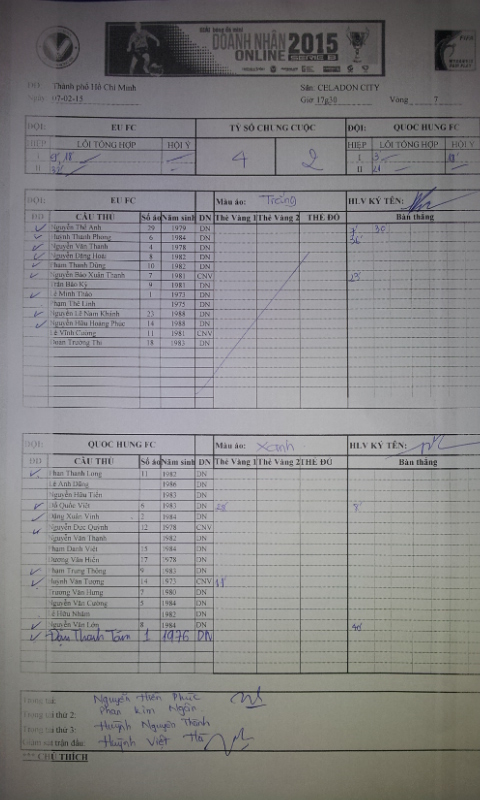 DOANH NHÂN 2015
ONLINE
Thành phố Hồ Chí Minh Sân: CELADON CITY
Ngày: 07-02-15 Giờ 17g30 Vòng
ĐỘI: EU FC TỶ SỐ CHUNG CUỘC ĐỘI: QUOC HUNG FC
HIỆP LỖI TỔNG HỢP HỘI Ý 4 2 HIỆP LỖI TỔNG HỢP HỘI Ý
I I
II II
ĐỘI: EU FC Màu áo: Trắng HLV KÝ TÊN:
DD CẦU THỦ Số áo Năm sinh DN Thẻ Vàng 1 Thẻ Vàng 2 THẺ ĐỎ Bàn thắng
Nguyễn Thế Anh 29 1979 DN
Huỳnh Thanh Phong 6 1984 DN
Nguyễn Văn Thanh 4 1978 DN
Nguyễn Đăng Hoài 8 1982 DN
Phạm Thanh Dũng 10 1982 DN
Nguyễn Bảo Xuân Thanh 7 1981 CNV
Trần Bảo Ký 9 1981 DN
Lê Minh Thảo 1 1973 DN
Phạm Thế Linh 1975 DN
Nguyễn Lê Nam Khánh 23 1988 DN
Nguyễn Hữu Hoàng Phúc 14 1988 DN
Lê Vĩnh Cường 11 1981 CNV
Đoàn Trường Thi 18 1983 DN
ĐỘI: QUOC HUNG FC Màu áo: Xanh HLV KÝ TÊN:
DD CẦU THỦ Số áo Năm sinh DN Thẻ Vàng 1 Thẻ Vàng 2 THẺ ĐỎ Bàn thắng
Phan Thanh Long 11 1982 DN
Lê Anh Dũng 1986 DN
Nguyễn Hữu Tiến 1983 DN
Đỗ Quốc Việt 6 1983 DN
Đặng Xuân Vinh 2 1984 DN
Nguyễn Đức Quỳnh 12 1978 CNV
Nguyễn Văn Thạnh 1982 DN
Phạm Danh Việt 15 1984 DN
Dương Văn Hiền 17 1978 DN
Phạm Trung Thông 9 1983 DN
Huỳnh Văn Tượng 14 1973 CNV
Trương Văn Hưng 7 1980 DN
Nguyễn Văn Cường 5 1984 DN
Lê Hữu Nhâm 1982 DN
Nguyễn Văn Lớn 8 1984 DN
Đậu Thanh Tâm 1 1976 DN
Trọng tài: Nguyễn Hiền Phúc
Trọng tài thứ 2: Phan Kim Ngân
Trọng tài thứ 3: Huỳnh Nguyên Thành
Giám sát trận đấu: Huỳnh Việt Hà
*** CHÚ THÍCH